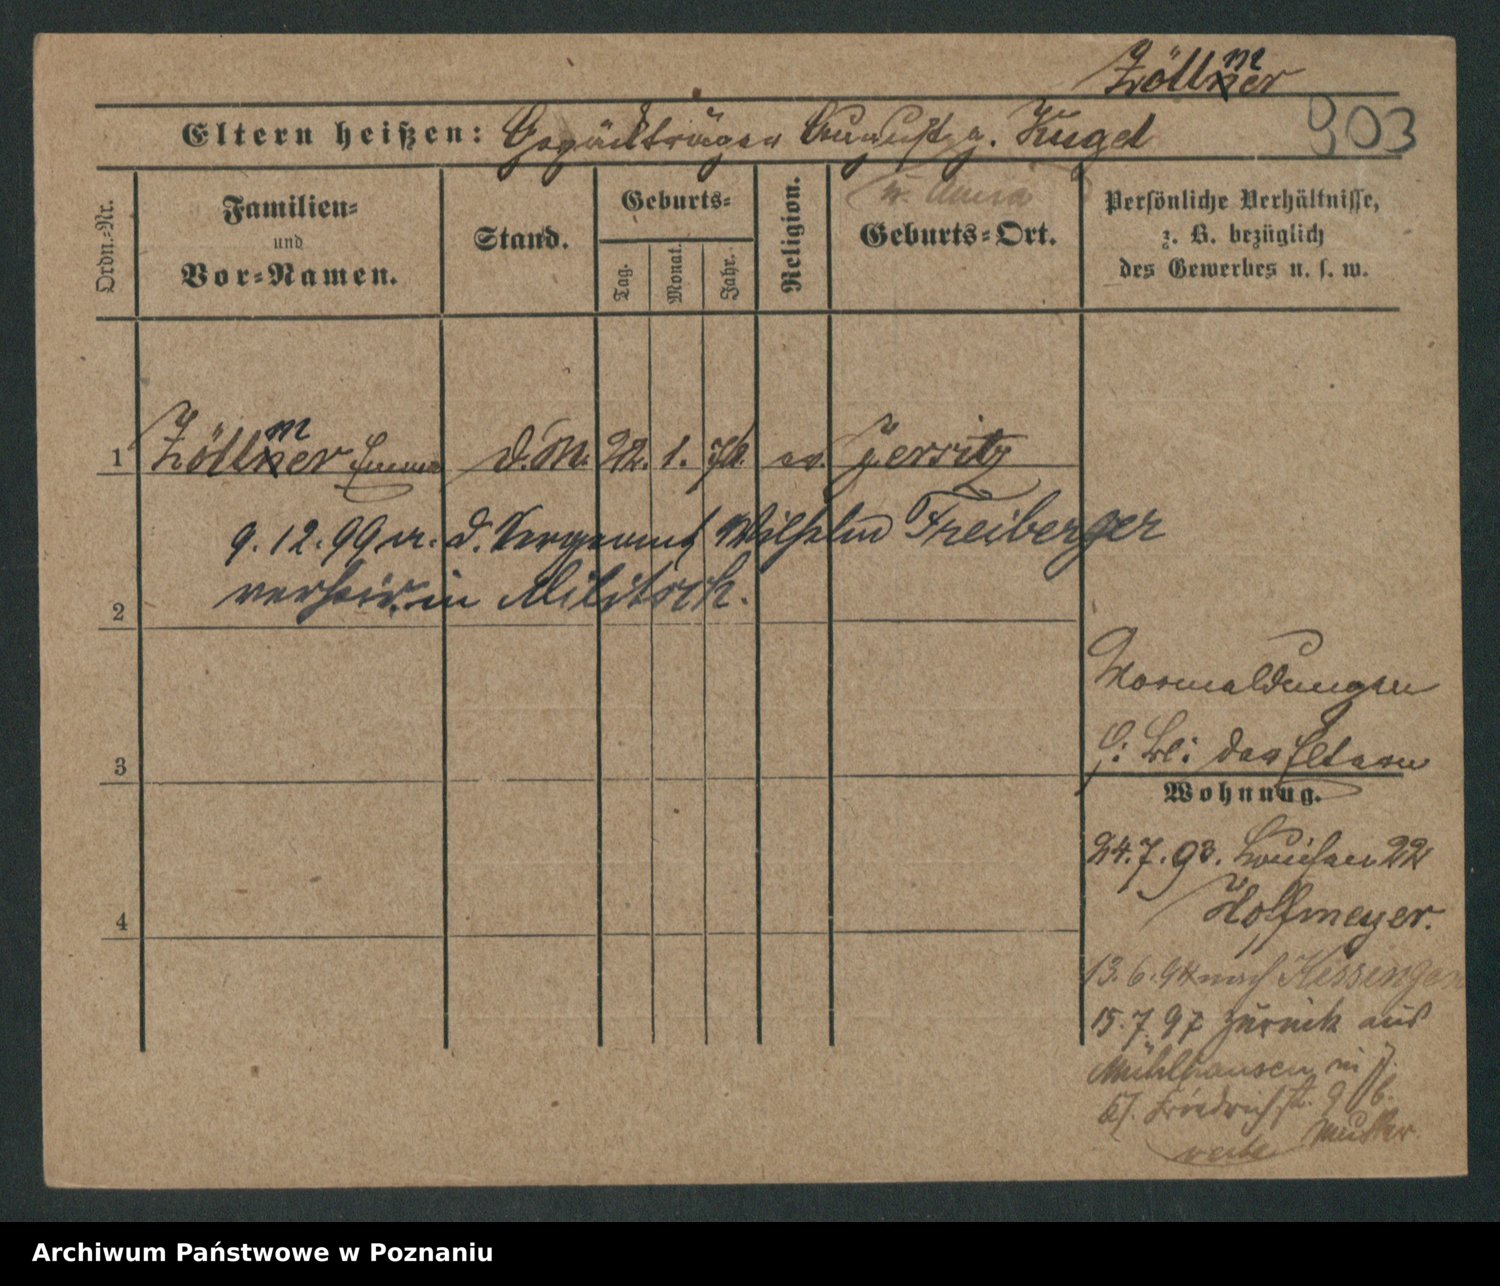 Zöllmer
Eltern heißen: Gepäckträger August g. Kugel
903
w. Anna
Ordn.-Nr.
Familien-
und
Vor-Namen.
Stand.
Geburts-
Tag.
Monat.
Jahr.
Religion.
Geburts-Ort.
Persönliche Verhältnisse,
z. B. bezüglich
des Gewerbes u. s. w.
1 Zöllmer Emma d. M. 22. 1. ev.
9.12.99 m. d. Sergeant Wilhelm Freiberger
2 verheir. in Militsch.
3
4
Vormeldungen
s: Bl: der Eltern
Wohnung.
24.7.93. Louisen 22
Hoffmeyer.
13.6.94 nach Kissingen
15.7.97 zurück aus
Mühlhausen in
Friedrichstr. 9 b.
Mutter